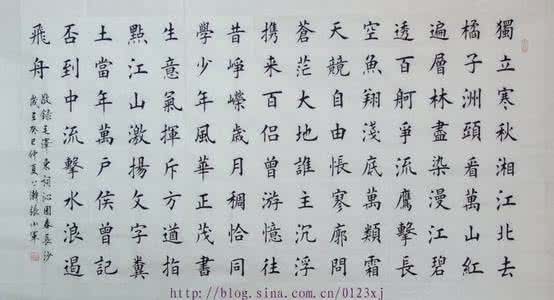 獨立寒秋湘江北去
橘子洲頭看萬山紅
遍層林盡染漫江碧
透百舸爭流鷹擊長
空魚翔淺底萬類霜
天競自由悵寥廓問
蒼茫大地誰主沉浮
携來百侶曾游憶往
昔崢嶸歲月稠恰同
學少年風華正茂書
生意氣揮斥方遒指
點江山激揚文字糞
土當年萬戶侯曾記
否到中流擊水浪遏
飛舟
敬錄毛澤東詞沁園春長沙
癸巳仲夏張小軍
http://blog.sina.com.cn/0123xj